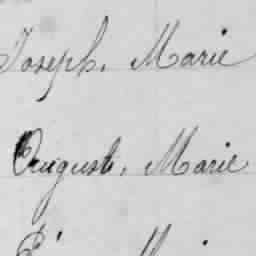 Joseph, Marie
Auguste, Marie